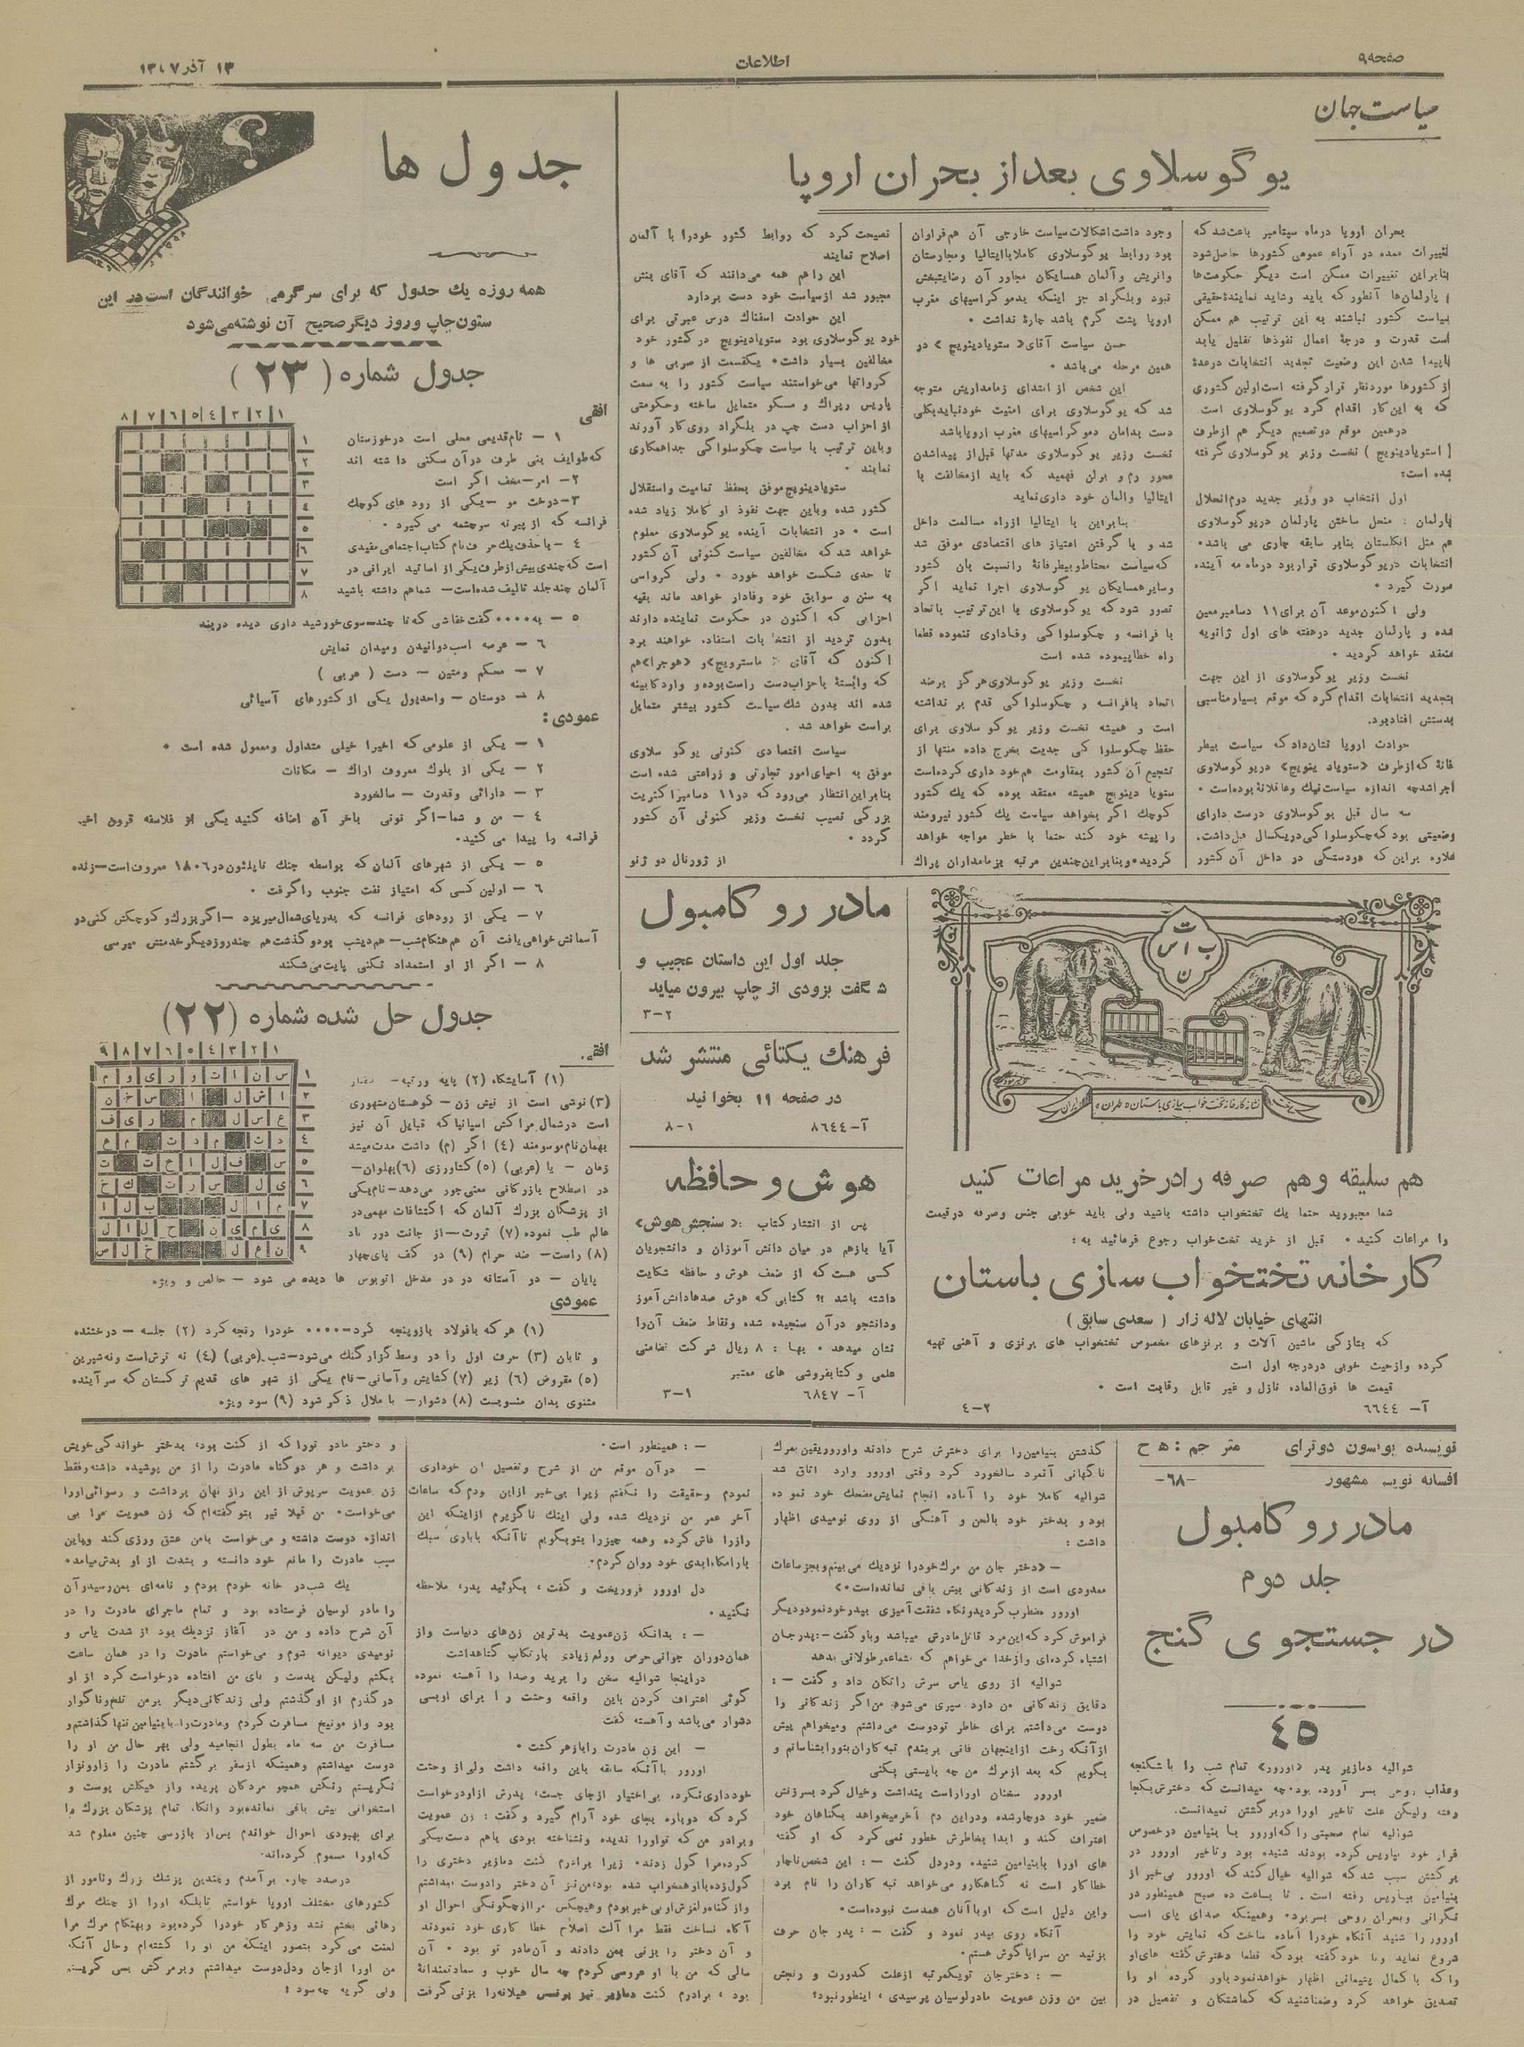 صفحه۹
اطلاعات
۱۳ آذر ۱۳۱۷
سیاست جهان
یوگوسلاوی بعد از بحران اروپا
بحران اروپا درماه سپتامبر باعث‌شد که
تغییرات عمده در آراء عمومی کشورها حاصل‌شود
بنابراین تغییرات ممکن است دیگر حکومت‌ها
پارلمان‌ها آنطور که باید وشاید نمایندهٔ حقیقی
سیاست کشور نباشند به این ترتیب هم ممکن
است قدرت و درجهٔ اعمال نفوذها تقلیل یابد
از کشورها موردنظر قرار گرفته است اولین کشوری
که به این کار اقدام کرد یوگوسلاوی است
درهمین موقع دوتصمیم دیگر هم ازطرف
(استویادینویچ) نخست وزیر یوگوسلاوی گرفته
شده است:
اول انتخاب دو وزیر جدید دوم انحلال
پارلمان: منحل ساختن پارلمان دریوگوسلاوی
هم مثل انگلستان بنابر سابقه جاری می باشد.
انتخابات دریوگوسلاوی قرار بود درماه مه آینده
صورت گیرد.
ولی اکنون موعد آن برای ۱۱ دسامبر معین
شده و پارلمان جدید درهفته های اول ژانویه
منعقد خواهد گردید.
نخست وزیر یوگوسلاوی از این جهت
بتجدید انتخابات اقدام کرد که موقع بسیار مناسبی
بدستش افتاد بود.
حوادث اروپا نشان داد که سیاست بیطر
فانهٔ که ازطرف «ستویادینویچ» دریوگوسلاوی
اجرا شد چه اندازه سیاست نیک وعاقلانهٔ بوده است.
سه سال قبل یوگوسلاوی درست دارای
وضعیتی بود که چکوسلواکی دریکسال قبل داشت.
علاوه براین که دودستگی در داخل آن کشور
وجود داشت اشکالات سیاست خارجی آن هم فراوان
بود روابط یوگوسلاوی کاملا با ایتالیا ومجارستان
واتریش وآلمان همسایگان مجاور آن رضایتبخش
نبود وبلگراد جز اینکه بدموکراسیهای مغرب
اروپا پشت گرم باشد چارهٔ نداشت.
حسن سیاست آقای «ستویادینویچ» در
همین مرحله می باشد.
این شخص از ابتدای زمامداریش متوجه
شد که یوگوسلاوی برای امنیت خود نباید بکلی
دست بدامان دموکراسیهای مغرب اروپا باشد
نخست وزیر یوگوسلاوی مدتها قبل از پیداشدن
محور رم و برلن فهمید که باید ازمخالفت با
ایتالیا والمان خود داری نماید
بنابراین با ایتالیا ازراه مسالمت داخل
شد و با گرفتن امتیاز های اقتصادی موفق شد
که سیاست محتاط و بیطرفانهٔ رانسبت بان کشور
وسایر همسایگان یوگوسلاوی اجرا نماید اگر
تصور شود که یوگوسلاوی با این ترتیب باتحاد
با فرانسه و چکوسلواکی وفاداری ننموده قطعا
راه خطا پیموده شده است
نخست وزیر یوگوسلاوی هرگز برضد
اتحاد بافرانسه و چکوسلواکی قدم بر نداشته
است و همیشه نخست وزیر یوگوسلاوی برای
حفظ چکوسلوا کی جدیت بخرج داده منتها از
تشجیع آن کشور بمقاومت هم خود داری کرده است
ستویا دینویچ همیشه معتقد بوده که یك کشور
کوچك اگر بخواهد سیاست یك کشور نیرومند
را پیشه خود کند حتما با خطر مواجه خواهد
گردید. وبنابراین چندین مرتبه بزمامداران پراک
نصیحت کرد که روابط کشور خودرا با آلمان
اصلاح نمایند
این راهم همه می‌دانند که آقای بنش
مجبور شد ازسیاست خود دست بردارد
این حوادث اسفناك درس عبرتی برای
خود یوگوسلاوی بود ستویادینویچ در کشور خود
مخالفین بسیار داشت. یکقسمت از صربی ها و
کرواتها می‌خواستند سیاست کشور را به سمت
پاریس پراك و مسکو متمایل ساخته وحکومتی
از احزاب دست چپ در بلگراد روی کار آورند
وباین ترتیب با سیاست چکوسلواکی جدا همکاری
نمایند.
ستویادینویچ موفق بحفظ تمامیت و استقلال
کشور شده وباین جهت نفوذ او کاملا زیاد شده
است. در انتخابات آینده یوگوسلاوی معلوم
خواهد شد که مخالفین سیاست کنونی آن کشور
تا حدی شکست خواهد خورد. ولی کرواسی
به سنن و سوابق خود وفادار خواهد ماند بقیه
احزابی که اکنون در حکومت نماینده دارند
بدون تردید از انتخا بات استفاد. خواهند برد
اکنون که آقای «ماسترویچ» و «هوجرا» هم
که وابستهٔ باحزاب دست راست بوده و وارد کابینه
شده اند بدون شك سیاست کشور بیشتر متمایل
براست خواهد شد.
سیاست اقتصادی کنونی یوگو سلاوی
موفق به احیای امور تجارتی و زراعتی شده است
بنابراین انتظار می‌رود که در ۱۱ دسامبر اکثریت
بزرگی نصیب نخست وزیر کنونی آن کشور
گردد.
از ژورنال دو ژنو
جدول ها
همه روزه یك جدول که برای سرگرمی خوانندگان است در این
ستون چاپ وروز دیگر صحیح آن نوشته می‌شود
جدول شماره (۲۳)
افقی
۱ ۲ ۳ ٤ ٥ ٦ ۷ ۸
۱ – نام قدیمی محلی است درخوزستان
که طوایف بنی طرف در آن سکنی داشته اند
۲ – امر – مخفف اگر است
۳ – درخت مو – یکی از رود های کوچك
فرانسه که از پیرنه سرچشمه می گیرد.
٤ – باحذف یك حرف نام کتاب اجتماعی مفیدی
است که چندی پیش ازطرف یکی از اساتید ایرانی در
آلمان چند جلد تالیف شده است – شما هم داشته باشید
٥ – به.... گفت خفاشی که تا چند – سوی خورشید داری دیده دربند
٦ – عرصه اسب دوانیدن ومیدان نمایش
۷ – محکم ومتین – دست (عربی)
۸ – دوستان – واحد پول یکی از کشورهای آسیائی
عمودی:
۱ – یکی از علومی که اخیرا خیلی متداول ومعمول شده است.
۲ – یکی از بلوك معروف اراك – مکانات
۳ – دارائی وقدرت – سالخورد
٤ – من و شما – اگر نونی باخر آن اضافه کنید یکی از فلاسفه قرون اخیر
فرانسه را پیدا می کنید.
٥ – یکی از شهرهای آلمان که بواسطه جنك ناپلئون در ۱۸۰٦ معروف است – زنده
٦ – اولین کسی که امتیاز نفت جنوب را گرفت.
۷ – یکی از رودهای فرانسه که بدریای شمال میریزد – اگر بزرك و کوچکش کنی دو
آسمانش خواهی یافت آن هم هنگام شب – هم دیشب بود و گذشت هم چند روز دیگر خدمتش میرسی
۸ – اگر از او استمداد نکنی پایت می شکند
جدول حل شده شماره (۲۲)
افقی
۱ ۲ ۳ ٤ ٥ ٦ ۷ ۸ ۹
(۱) آسایشگاه (۲) پایه ورتبه –
(۳) نوشی است از نیش زن – کوهستان مشهوری
است درشمال مراکش اسپانیا که قبایل آن نیز
بهمان نام موسومند (٤) اگر (م) داشت مدت میشد
زمان – یا (عربی) (٥) کشاورزی (٦) پهلوان –
در اصطلاح بازرگانی معنی جور می‌دهد – نام یکی
از پزشکان بزرك آلمان که اکتشافات مهمی در
عالم طب نموده (۷) ثروت – از جانت دور باد
(۸) راست – ضد حرام (۹) در کف پای چهار
پایان – دو آستانه دو در مدخل اتوبوس ها دیده می شود – خالص و ویژه
عمودی
(۱) هر که بافولاد بازو پنجه کرد – .... خودرا رنجه کرد (۲) جلسه – درخشنده
و تابان (۳) حرف اول را در وسط گزار گنك می‌شود – شب (عربی) (٤) نه ترش است ونه شیرین
(٥) مقروض (٦) زیر (۷) گشایش و آسانی – نام یکی از شهر های قدیم ترکستان که سرآینده
مثنوی بدان منسوبست (۸) دشوار – با ملال ذکر شود (۹) سود ویژه
مادر رو کامبول
جلد اول این داستان عجیب و
شگفت بزودی از چاپ بیرون میاید
۳–۲
فرهنك یکتائی منتشر شد
در صفحه ۱۱ بخوانید
آ – ۸٦٤٤
۸–۱
هوش و حافظه
پس از انتشار کتاب: «سنجش هوش»
آیا بازهم در میان دانش آموزان و دانشجویان
کسی هست که از ضعف هوش و حافظه شکایت
داشته باشد؟! کتابی که هوش صدها دانش آموز
ودانشجو درآن سنجیده شده ونقاط ضعف آن را
نشان میدهد. بها: ۸ ریال شرکت تضامنی
علمی و کتابفروشی های معتبر
آ – ٦۸٤۷
۳–۱
نشانه کارخانه تختخواب سازی باستان طهران
هم سلیقه وهم صرفه را درخرید مراعات کنید
شما مجبورید حتما یك تختخواب داشته باشید ولی باید خوبی جنس وصرفه درقیمت
را مراعات کنید. قبل از خرید تختخواب رجوع فرمائید به:
کارخانه تختخواب سازی باستان
انتهای خیابان لاله زار (سعدی سابق)
که بتازگی ماشین آلات و برنزهای مخصوص تختخواب های برنزی و آهنی تهیه
کرده وازحیث خوبی دردرجه اول است
قیمت ها فوق‌العاده نازل و غیر قابل رقابت است.
آ – ٦٦٤٤
٤–۲
نویسنده پونسون دوترای
مترجم: ه ح
افسانه نویسه مشهور
–٦۸–
مادر رو کامبول
جلد دوم
در جستجوی گنج
٤٥
شوالیه دمازیر پدر «اورور» تمام شب را باشکنجه
وعذاب روحی بسر آورد. بود. چه میدانست که دخترش بکجا
رفته ولیکن علت تاخیر اورا دربرگشتن نمیدانست.
شوالیه تمام صحبتی را که اورور با بنیامین درخصوص
قرار خود بپاریس کرده بودند شنیده بود وتاخیر اورور در
برگشتن سبب شد که شوالیه خیال کند که اورور بی خبر از
بنیامین بپاریس رفته است. تا بساعت ده صبح همینطور در
نگرانی وبحران روحی بسر بود. وهمینکه صدای پای اسب
اورور را شنید آنکاه خودرا آماده ساخت که نمایش خود را
شروع نماید وبا خود گفته بود که قطعا دخترش گفته های او
را که با کمال پشیمانی اظهار خواهد نمود باور کرده او را
تصدیق خواهد کرد وضمنا شنید که گماشتگان و تفصیل در
گذشتن بنیامین را برای دخترش شرح دادند واورور یقین بمرك
ناگهانی آنمرد سالخورد کرد وقتی اورور وارد اتاق شد
شوالیه کاملا خود را آماده انجام نمایش مضحك خود نموده
بود و بدختر خود بالحن و آهنگی از روی نومیدی اظهار
داشت:
– «دختر جان من مرك خودرا نزدیك می بینم و بجز ساعات
معدودی است از زندگانی بیش باقی نمانده است.»
اورور مضطرب گردید ونگاه شفقت آمیزی بپدر خود نمود ودیگر
فراموش کرد که این مرد قاتل مادرش میباشد وباو گفت – : پدر جان
اشتباه کرده‌ای واز خدا می‌خواهم که بشما عمر طولانی بدهد
شوالیه از روی یاس سرش راتکان داد و گفت – :
دقایق زندگانی من دارد سپری می‌شود من اگر زندگانی را
دوست می‌داشتم برای خاطر تو دوست می داشتم ومیخواهم پیش
از آنکه رخت ازاینجهان فانی بربندم تبه کاران بتورا بشناسانم و
بگویم که بعد از مرك من چه بایستی بکنی
اورور سخنان اورا راست پنداشت وخیال کرد بسرزنش
ضمیر خود دوچار شده ودراین دم آخر میخواهد بگناهان خود
اعتراف کند و ابدا بخاطرش خطور نمی کرد که او گفته
های اورا با بنیامین شنیده ودردل گفت – : این شخص ناچار
خطاکار است نه گناهکار و می‌خواهد تبه کاران را نام برد
واین دلیل است که او باآنان همدست نبوده است.
آنکاه روی بپدر نمود و گفت – : پدر جان حرف
بزنید من سراپا گوش هستم.
– : دختر جان تو یکمرتبه ازعلت کدورت و رنجش
بین من وزن عمویت مادر لوسیان پرسیدی، اینطور نبود؟
– : همینطور است.
– درآن موقع من از شرح وتفصیل آن خودداری
نمودم وحقیقت را نگفتم زیرا بی خبر ازاین بودم که ساعات
آخر عمر من نزدیك شده ولی اینك ناگزیرم ازاینکه این
رازرا فاش کرده وهمه چیزرا بتو بگویم تا آنکه باباری سبك
بارامگاه ابدی خود روان گردم.
دل اورور فروریخت و گفت، بگوئید پدر، ملاحظه
نکنید.
– : بدانکه زن عمویت بدترین زن‌های دنیاست واز
همان دوران جوانی حرص وولع زیادی بارتکاب گناه داشت
دراینجا شوالیه سخن را برید وصدا را آهسته نموده
گوئی اعتراف کردن باین واقعه وحشت را برای اوبسی
دشوار می باشد و آهسته گفت
– این زن مادرت رابازهر کشت.
اورور باآنکه سابقه باین واقعه داشت ولی از وحشت
خودداری نکرد. بی اختیار ازجای جست، پدرش ازاو درخواست
کرد که دوباره بجای خود آرام گیرد و گفت: زن عمویت
وبرادر من که تواورا ندیده ونشناخته بودی باهم دست بیکی
کرده مرا گول زدند. زیرا برادرم کنت دمازیر دختری را
گول زده با او همخواب شده بود، من نیز آن دختر رادوست میداشتم
واز گناه و لغزش او بی خبر بودم وهیچکس مرا ازچگونگی احوال او
آگاه نساخت فقط مرا آلت اصلاح خطا کاری خود نمودند
و آن دختر را بزنی بمن دادند و آن مادر تو بود. آن
سالی که من با او عروسی کردم چه سال خوب و سعادتمندانهٔ
بود، برادرم کنت دمازیر نیز پرنسس هیلانه را بزنی گرفت
و دختر مادو تورا که از کنت بود، بدختر خواندگی خویش
بر داشت و هر دو گناه مادرت را از من پوشیده داشته وفقط
زن عمویت سرپوش از این راز نهان برداشت و رسوائی اورا
می‌خواست. من قبلا نیز بتو گفته‌ام که زن عمویت مرا بی
اندازه دوست داشته و می‌خواست بامن عشق ورزی کند وباین
سبب مادرت را مانع خود دانسته و بشدت از او بدش میامد.
یك شب در خانه خودم بودم و نامه‌ای بمن رسید و آن
را مادر لوسیان فرستاده بود و تمام ماجرای مادرت را در
آن شرح داده و من در آغاز نزدیك بود از شدت یاس و
نومیدی دیوانه شوم و می‌خواستم مادرت را در همان ساعت
بکشم ولیکن بدست و پای من افتاده درخواست کرد از او
درگذرم از او گذشتم ولی زندگانی دیگر برمن تلخ وناگوار
بود واز مونیخ مسافرت کردم ومادرت را با بنیامین تنها گذاشتم و
مسافرت من سه ماه بطول انجامید ولی بهر حال من او را
دوست میداشتم وهمینکه ازسفر بر گشتم مادرت را زار ونزار
نگریستم رنگش همچو مردگان پریده واز هیکلش پوست و
استخوانی بیش باقی نمانده بود وانگا. تمام پزشکان بزرك را
برای بهبودی احوال خواندم پس از بازرسی چنین معلوم شد
که اورا مسموم کرده‌اند.
درصدد چاره برآمدم وچندین پزشك بزرك ونامور از
کشورهای مختلف اروپا خواستم تا بلکه اورا از چنك مرك
رهائی بخشم نشد وزهر کار خودرا کرده بود وبهنگام مرك مرا
لعنت می کرد بتصور اینکه من او را کشته‌ام وحال آنکه
من اورا ازجان ودل دوست میداشتم وبر مرگش بسی گریستم
ولی گریه چه سود؟